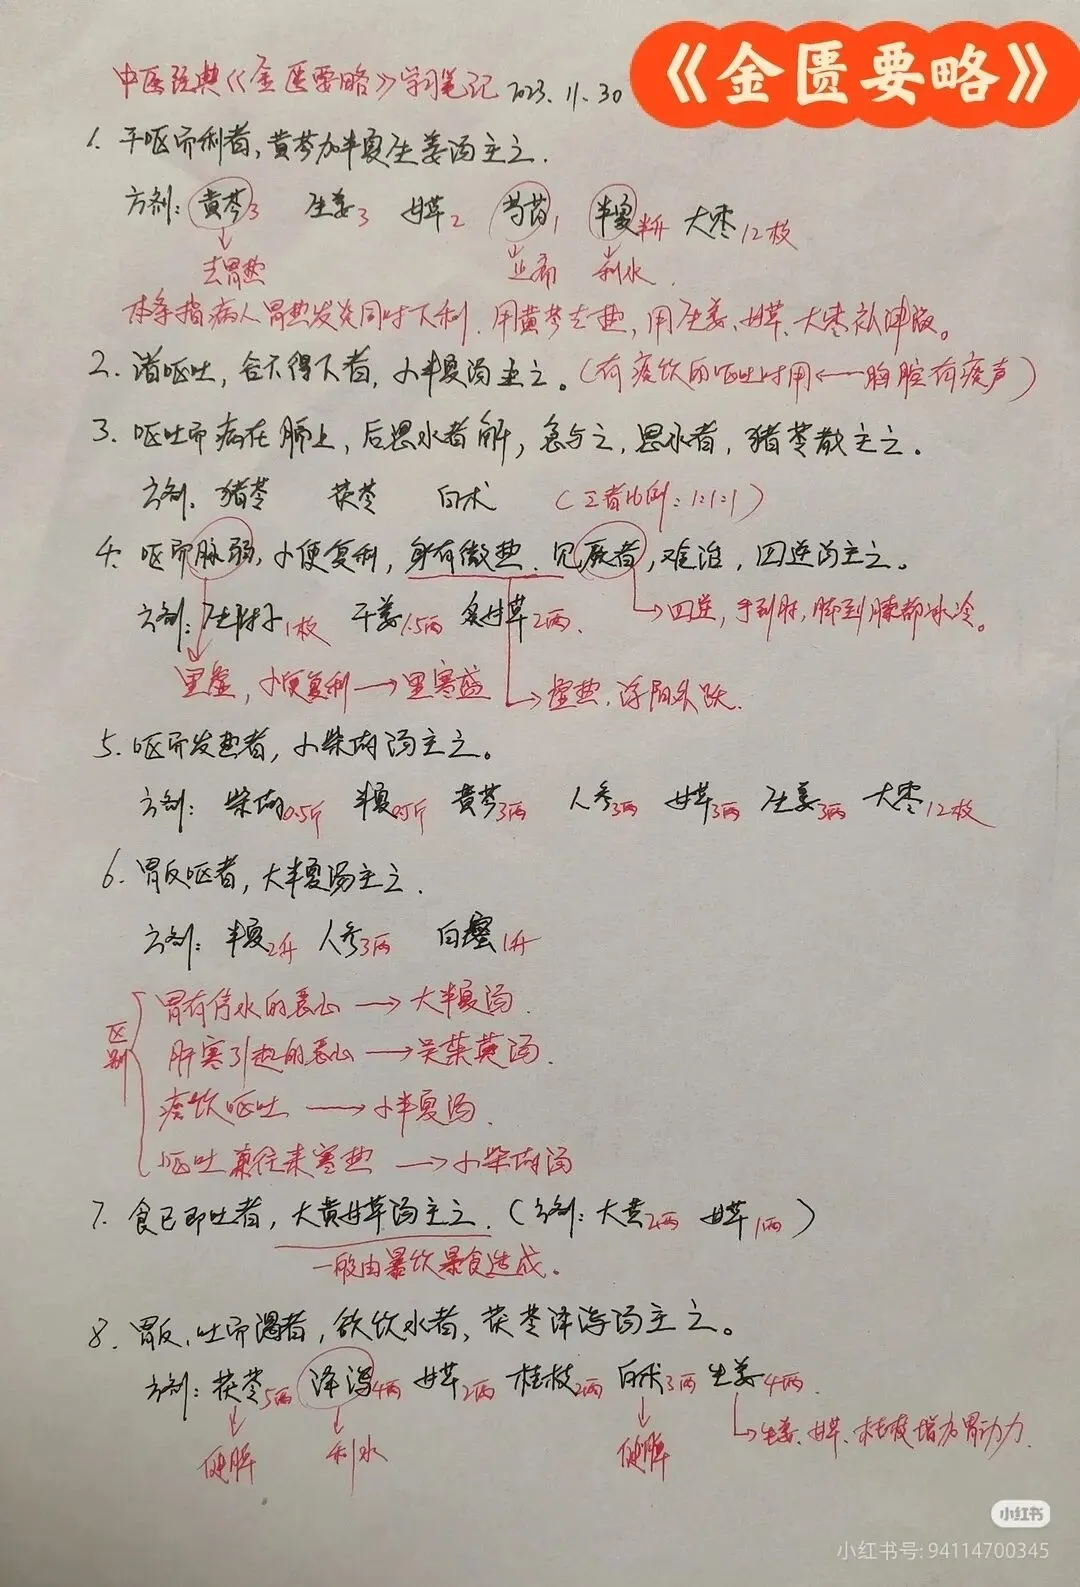 《金匮要略》
中医经典《金匮要略》学习笔记 2023.11.30
1. 干呕而利者，黄芩加半夏生姜汤主之.
方剂：黄芩3 生姜3 甘草2 芍药1 半夏半升 大枣12枚
去胃热 止痛 利水.
本条指病人胃热发炎同时下利.用黄芩去热,用生姜、甘草、大枣补津液。
2. 诸呕吐，谷不得下者，小半夏汤主之。(有痰饮的呕吐时用←胸腔有痰声)
3. 呕吐而病在膈上，后思水者解，急与之，思水者，猪苓散主之。
方剂. 猪苓 茯苓 白术 (三者比例：1:1:1)
4. 呕而脉弱，小便复利，身有微热.见厥者，难治，四逆汤主之。
方剂：生附子1枚 干姜1.5两 炙甘草2两. →四逆，手到肘，脚到膝都冰冷。
里虚，小便复利→里寒盛 →虚热.浮阳头跃.
5. 呕而发热者，小柴胡汤主之。
方剂：柴胡0.5斤 半夏0.5斤 黄芩3两 人参3两 甘草3两 生姜3两 大枣12枚
6. 胃反呕者，大半夏汤主之.
方剂：半夏2升 人参3两 白蜜1升
区别
胃有停水的恶心→大半夏汤.
肝寒引起的恶心→吴茱萸汤.
痰饮呕吐→小半夏汤.
呕吐兼往来寒热→小柴胡汤
7. 食已即吐者，大黄甘草汤主之.(方剂：大黄2两 甘草1两)
一般由暴饮暴食造成。
8. 胃反、吐而渴者，欲饮水者，茯苓泽泻汤主之。
方剂：茯苓5两 泽泻4两 甘草2两 桂枝2两 白术3两 生姜4两.
健脾 利水 健脾 →生姜、甘草、桂枝增加胃动力.
小红书
小红书号: 94114700345